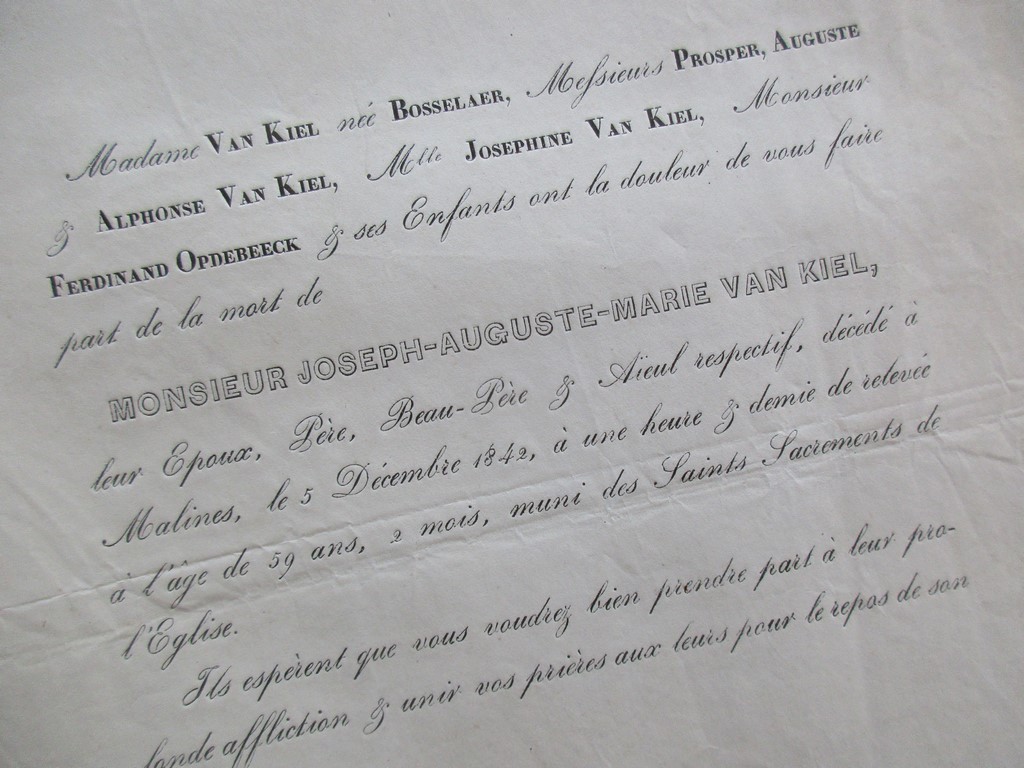 Madame VAN KIEL née BOSSELAER, Messieurs PROSPER, AUGUSTE
& ALPHONSE VAN KIEL, Mlle JOSEPHINE VAN KIEL, Monsieur
FERDINAND OPDEBEECK & ses Enfants ont la douleur de vous faire
part de la mort de
MONSIEUR JOSEPH-AUGUSTE-MARIE VAN KIEL,
leur Epoux, Père, Beau-Père & Aïeul respectif, décédé à
Malines, le 5 Décembre 1842, à une heure & demie de relevée
à l'âge de 59 ans, 2 mois, muni des Saints Sacrements de
l'Eglise.
Ils espèrent que vous voudrez bien prendre part à leur pro-
fonde affliction & unir vos prières aux leurs pour le repos de son